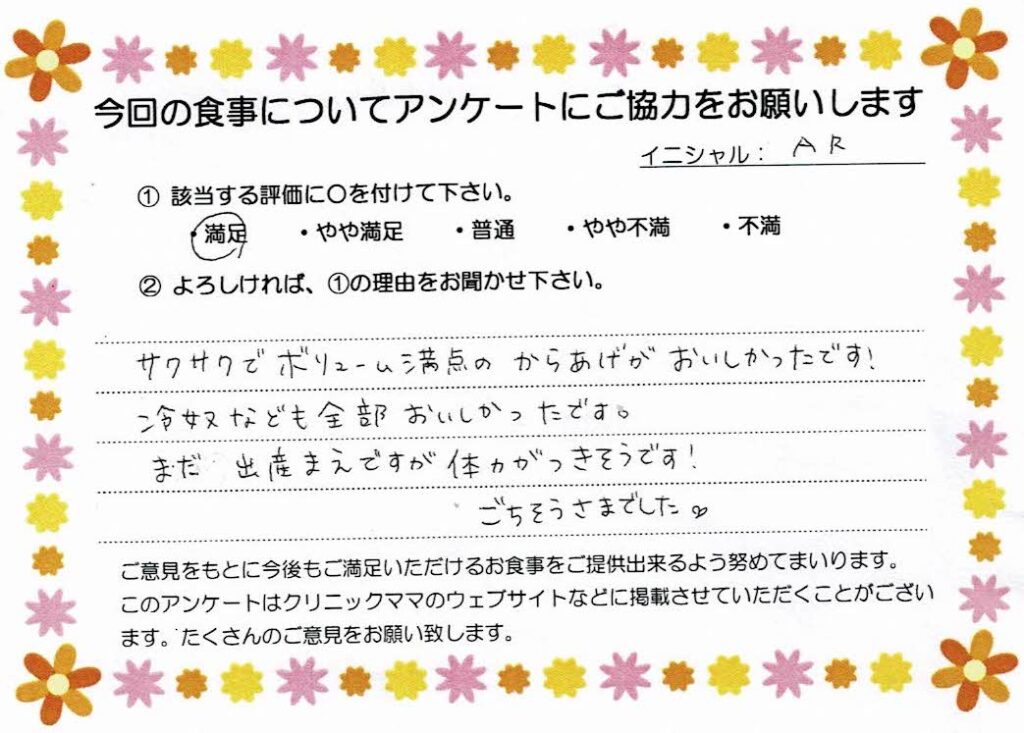 今回の食事についてアンケートにご協力をお願いします
イニシャル： AR
① 該当する評価に○を付けて下さい。
・満足 ・やや満足 ・普通 ・やや不満 ・不満
② よろしければ、①の理由をお聞かせ下さい。
サクサクでボリューム満点のからあげがおいしかったです!
冷奴なども全部おいしかったです。
まだ出産まえですが体力がつきそうです!
ごちそうさまでした♡
ご意見をもとに今後もご満足いただけるお食事をご提供出来るよう努めてまいります。
このアンケートはクリニックママのウェブサイトなどに掲載させていただくことがござい
ます。たくさんのご意見をお願い致します。